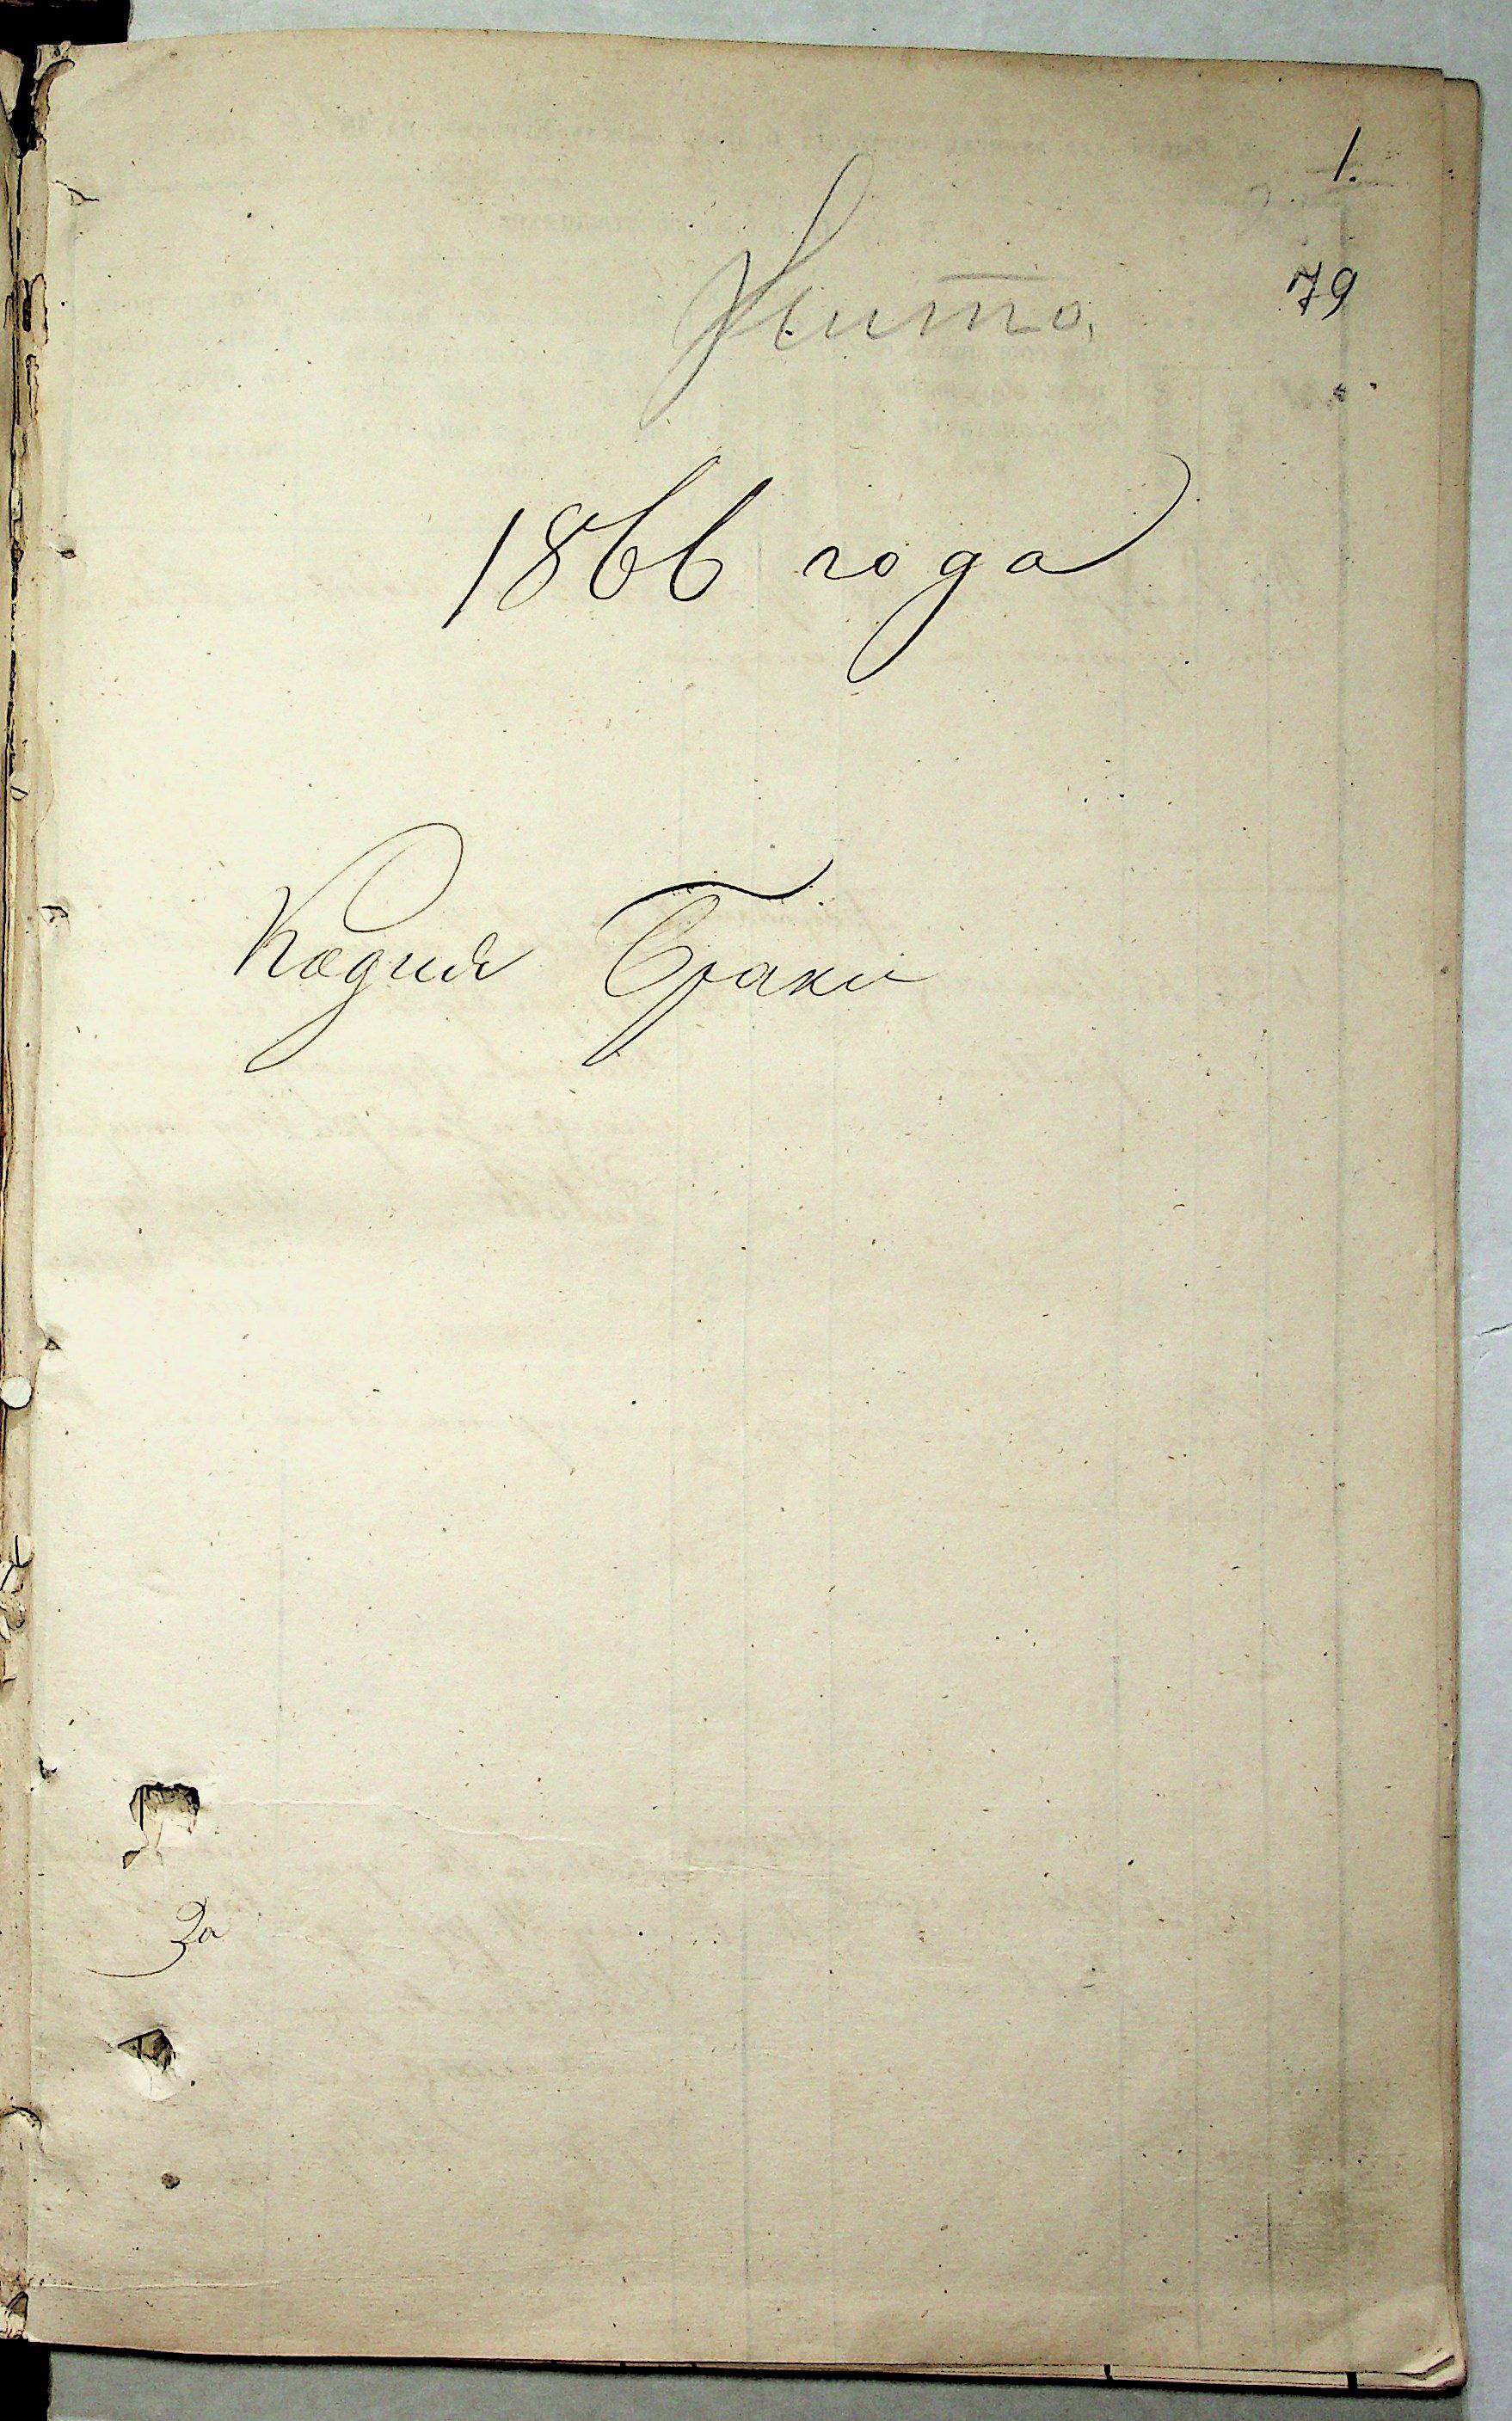 1.
79
Жито,
1866 года
Кодня Браки
За